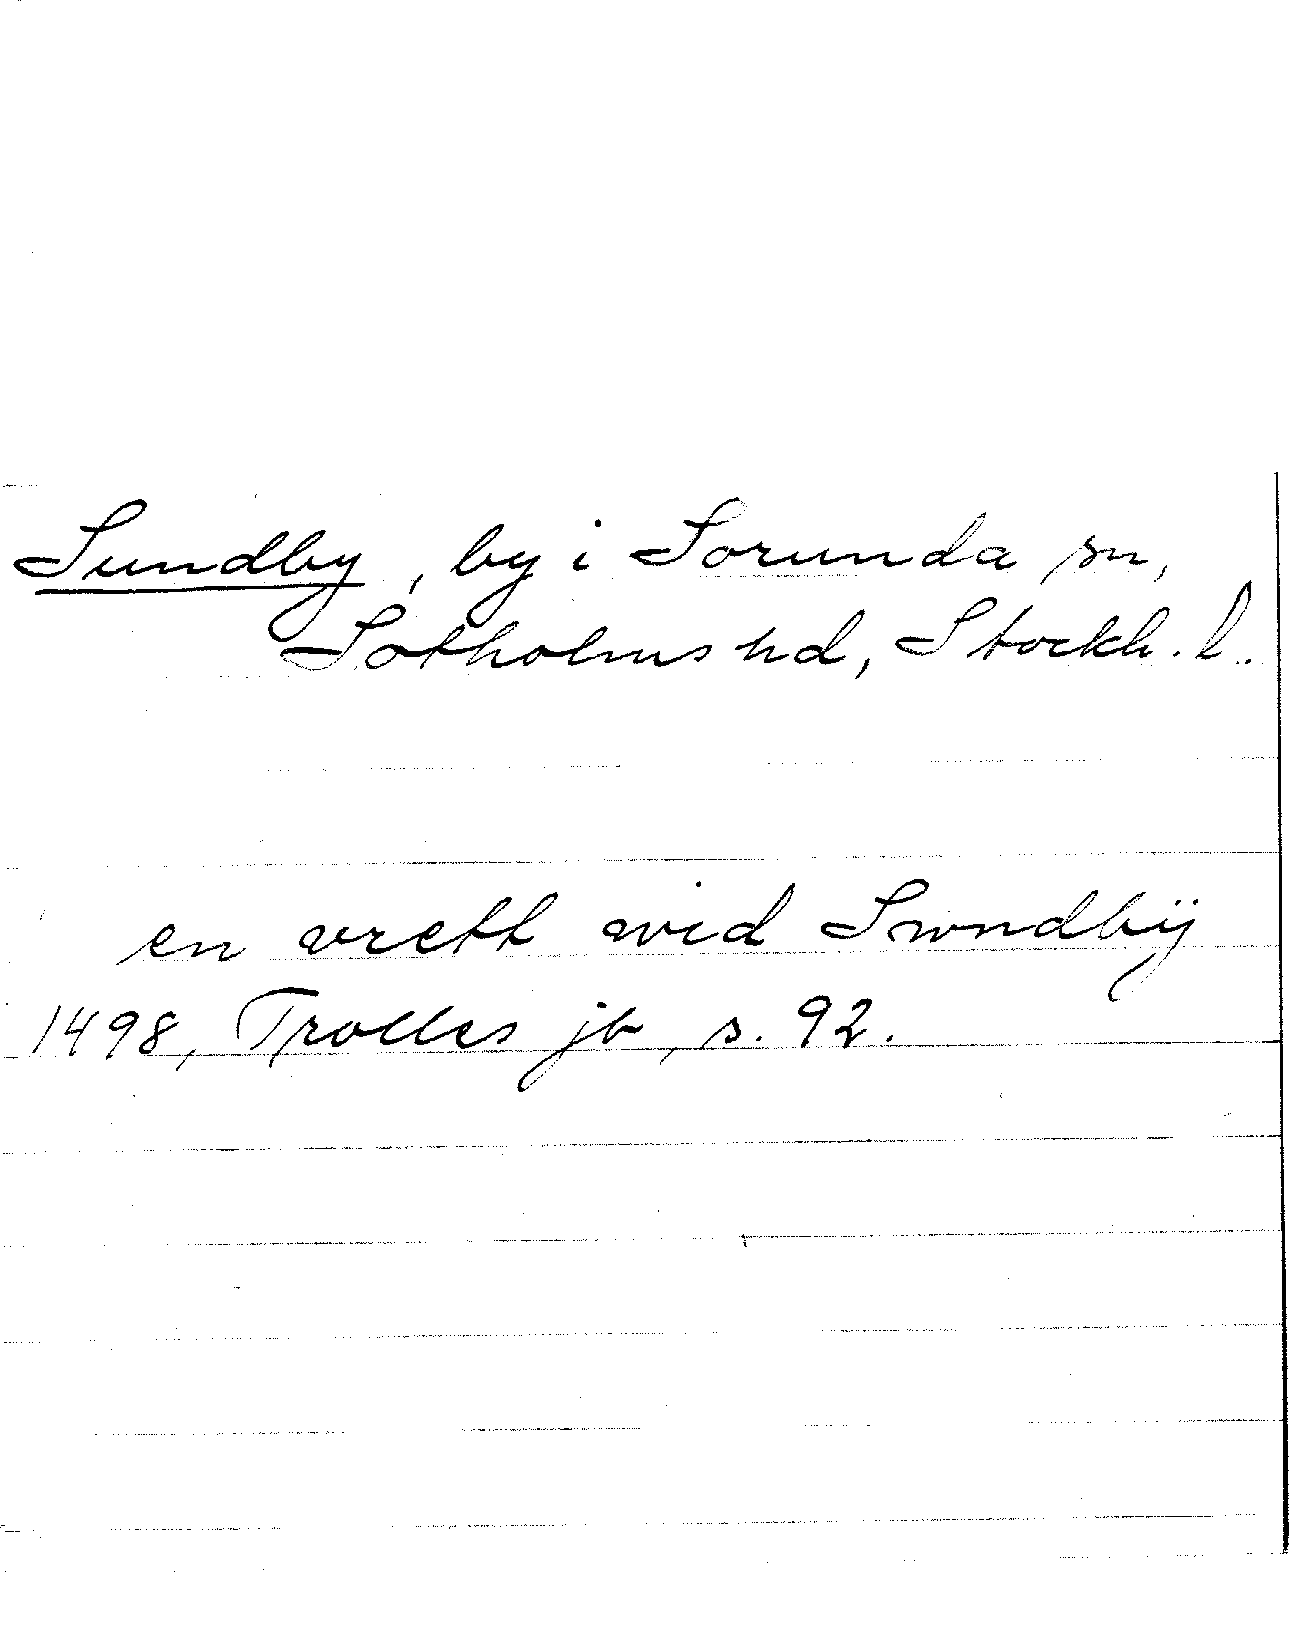 Sundby, by i Sorunda sn,
Sotholms hd, Stockh. l.
en vrett wid Swndbÿ
1498, Trolles jb, s. 92.